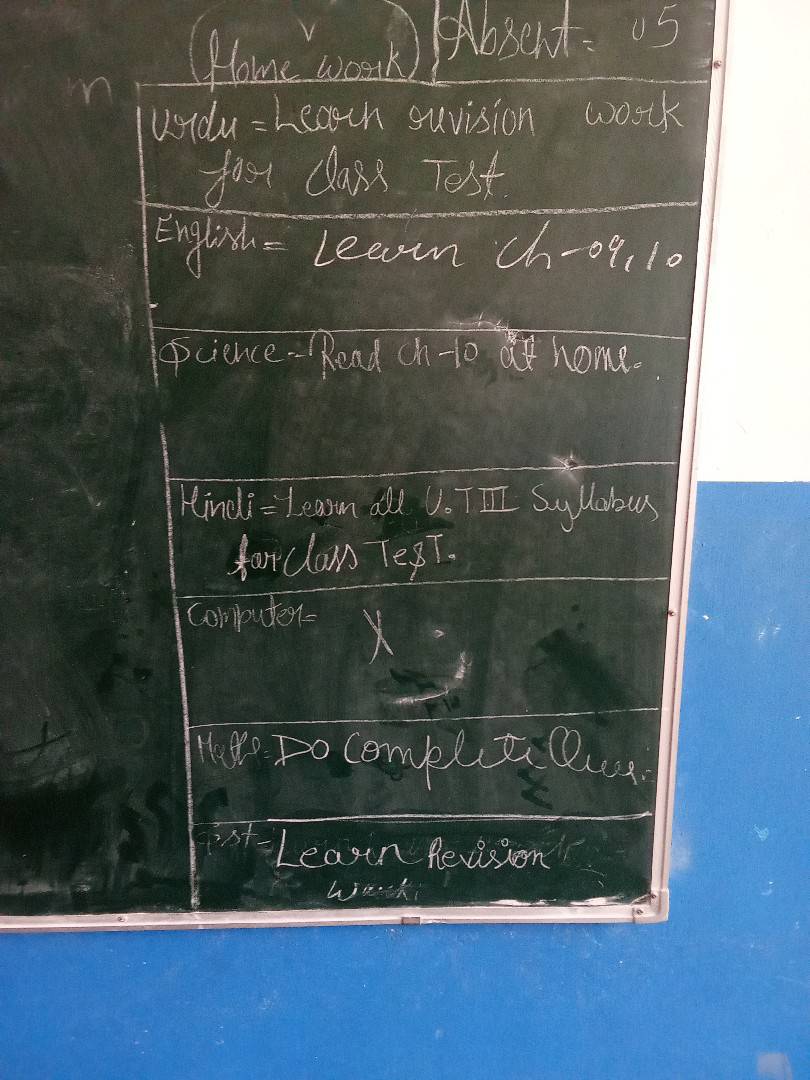 (Home work) Absent = 05
m
Urdu = Learn revision work
for class Test.
English = Learn Ch-09,10
Science - Read ch-10 at home.
Hindi = Learn all U.T III Syllabus
for class TEST.
Computer = X
Maths = DO Complete Ques.
SST - Learn Revision
work.